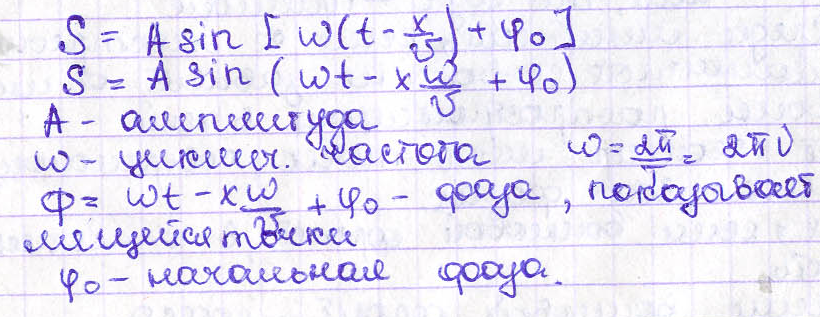 S = A sin [ ω(t - x/υ) + φ₀ ]
S = A sin ( ωt - x ω/υ + φ₀ )
A - амплитуда
ω - циклич. частота ω = 2π/T = 2πν
Ф = ωt - x ω/υ + φ₀ - фаза, показывает
лющейся точки
φ₀ - начальная фаза.